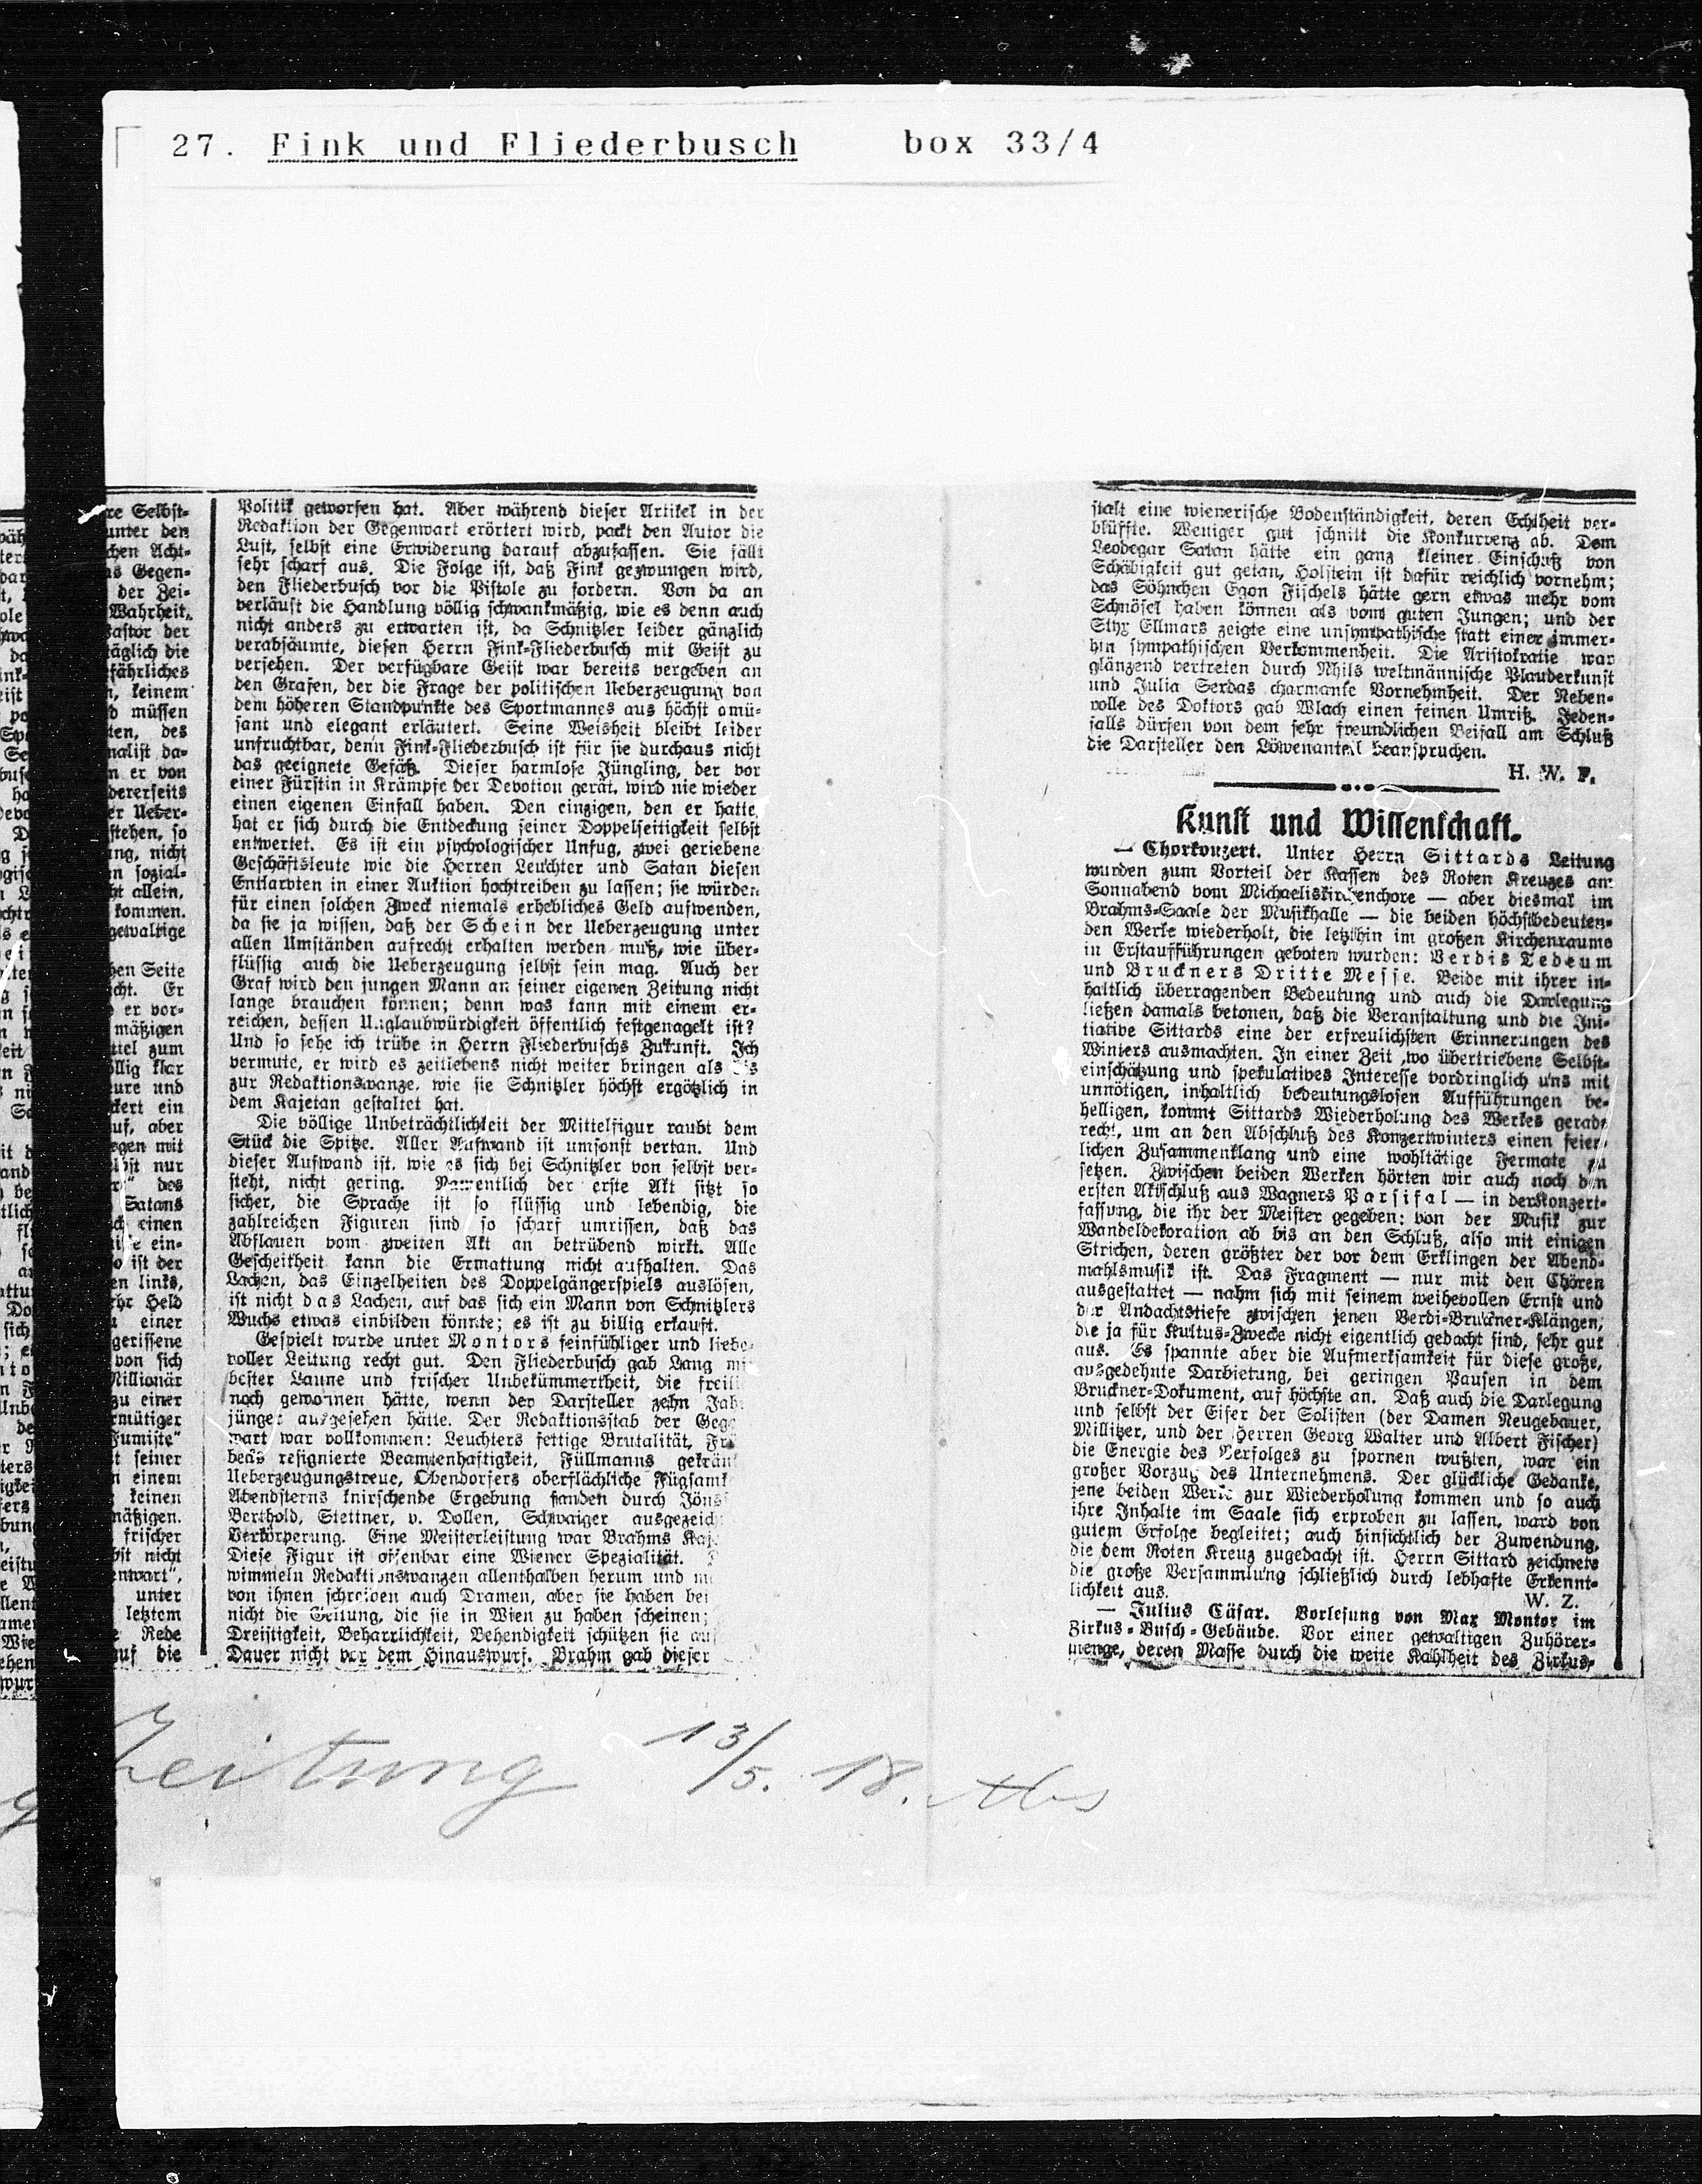 27. Fink und Fliederbusch box 33/4
Selbst-
unter den
chen Acht-
Gegen-
der Zei-
Wahrheit,
Pastor der
täglich die
fährliches
keinem
müssen
des
nalist da-
er von
dererseits
Ueber-
stehen, so
ung, nicht
sozial-
allein,
kommen.
gewaltige
Seite
Er
er vor-
mäßigen
zum
klar
und
ein
aber
mit
nur
des
Satans
einen
ein-
ist der
links,
Held
einer
gerissene
von sich
Millionär
zu einer
Fumiste"
seiner
einem
keinen
mäßigen.
frischer
nicht
unter
letztem
Rede
auf die
Politik geworfen hat. Aber während dieser Artikel in der
Redaktion der Gegenwart erörtert wird, packt den Autor die
Lust, selbst eine Erwiderung darauf abzufassen. Sie fällt
sehr scharf aus. Die Folge ist, daß Fink gezwungen wird,
den Fliederbusch vor die Pistole zu fordern. Von da an
verläuft die Handlung völlig schwankmäßig, wie es denn auch
nicht anders zu erwarten ist, da Schnitzler leider gänzlich
verabsäumte, diesen Herrn Fink-Fliederbusch mit Geist zu
versehen. Der verfügbare Geist war bereits vergeben an
den Grafen, der die Frage der politischen Ueberzeugung von
dem höheren Standpunkte des Sportmannes aus höchst amü-
sant und elegant erläutert. Seine Weisheit bleibt leider
unfruchtbar, denn Fink-Fliederbusch ist für sie durchaus nicht
das geeignete Gefäß. Dieser harmlose Jüngling, der vor
einer Fürstin in Krämpfe der Devotion gerät, wird nie wieder
einen eigenen Einfall haben. Den einzigen, den er hatte,
hat er sich durch die Entdeckung seiner Doppelseitigkeit selbst
entwertet. Es ist ein psychologischer Unfug, zwei geriebene
Geschäftsleute wie die Herren Leuchter und Satan diesen
Entlarvten in einer Auktion hochtreiben zu lassen; sie würden
für einen solchen Zweck niemals erhebliches Geld aufwenden,
da sie ja wissen, daß der Schein der Ueberzeugung unter
allen Umständen aufrecht erhalten werden muß, wie über-
flüssig auch die Ueberzeugung selbst sein mag. Auch der
Graf wird den jungen Mann an seiner eigenen Zeitung nicht
lange brauchen können; denn was kann mit einem er-
reichen, dessen Unglaubwürdigkeit öffentlich festgenagelt ist?
Und so sehe ich trübe in Herrn Fliederbuschs Zukunft. Ich
vermute, er wird es zeitlebens nicht weiter bringen als bis
zur Redaktionswanze, wie sie Schnitzler höchst ergötzlich in
dem Kajetan gestaltet hat.
Die völlige Unbeträchtlichkeit der Mittelfigur raubt dem
Stück die Spitze. Aller Aufwand ist umsonst vertan. Und
dieser Aufwand ist, wie es sich bei Schnitzler von selbst ver-
steht, nicht gering. Namentlich der erste Akt sitzt so
sicher, die Sprache ist so flüssig und lebendig, die
zahlreichen Figuren sind so scharf umrissen, daß das
Abflauen vom zweiten Akt an betrübend wirkt. Alle
Gescheitheit kann die Ermattung nicht aufhalten. Das
Lachen, das Einzelheiten des Doppelgängerspiels auslösen,
ist nicht das Lachen, auf das sich ein Mann von Schnitzlers
Wuchs etwas einbilden könnte; es ist zu billig erkauft.
Gespielt wurde unter Montors feinfühliger und liebe-
voller Leitung recht gut. Den Fliederbusch gab Lang mit
bester Laune und frischer Unbekümmertheit, die
noch gewonnen hätte, wenn der Darsteller zehn
jünger ausgesehen hätte. Der Redaktionsstab der Gege
wart war vollkommen: Leuchters fettige Brutalität, Frü
beds resignierte Beamtenhaftigkeit, Füllmanns gekränk
Ueberzeugungstreue, Obendorfers oberflächliche Fügsamk
Abendsterns knirschende Ergebung fanden durch Jöns
Berthold, Stettner, v. Dollen, Schwaiger ausgezeich
Verkörperung. Eine Meisterleistung war Brahms Kaj
Diese Figur ist offenbar eine Wiener Spezialität.
wimmeln Redaktionswanzen allenthalben herum und
von ihnen schreiben auch Dramen, aber sie haben bei
nicht die Geltung, die sie in Wien zu haben scheinen;
Dreistigkeit, Beharrlichkeit, Behendigkeit schützen sie auf
Dauer nicht vor dem Hinauswurf. Brahm gab dieser
stalt eine wienerische Bodenständigkeit, deren Echtheit ver-
blüffte. Weniger gut schnitt die Konkurrenz ab. Dem
Leodegar Satan hätte ein ganz kleiner Einschuß von
Schäbigkeit gut getan, Holstein ist dafür reichlich vornehm;
das Söhnchen Egon Fischels hätte gern etwas mehr vom
Schnösel haben können als vom guten Jungen; und der
Styx Ellmars zeigte eine unsympathische statt einer immer-
hin sympathischen Verkommenheit. Die Aristokratie war
glänzend vertreten durch Rhils weltmännische Plauderkunst
und Julia Serdas charmante Vornehmheit. Der Neben-
rolle des Doktors gab Wlach einen feinen Umriß. Jeden-
falls dürfen von dem sehr freundlichen Beifall am Schluß
die Darsteller den Löwenanteil beanspruchen.
H. W. F.
Kunst und Wissenschaft.
— Chorkonzert. Unter Herrn Sittards Leitung
wurden zum Vorteil der Kassen des Roten Kreuzes am
Sonnabend vom Michaeliskirchenchore — aber diesmal im
Brahms-Saale der Musikhalle — die beiden höchstbedeuten-
den Werke wiederholt, die letzthin im großen Kirchenraume
in Erstaufführungen geboten wurden: Verdis Tedeum
und Bruckners Dritte Messe. Beide mit ihrer in-
haltlich überragenden Bedeutung und auch die Darlegung
ließen damals betonen, daß die Veranstaltung und die Ini-
tiative Sittards eine der erfreulichsten Erinnerungen des
Winters ausmachten. In einer Zeit ,wo übertriebene Selbst-
einschätzung und spekulatives Interesse vordringlich uns mit
unnötigen, inhaltlich bedeutungslosen Aufführungen be-
helligen, kommt Sittards Wiederholung des Werkes gerade
recht, um an den Abschluß des Konzertwinters einen feier-
lichen Zusammenklang und eine wohltätige Fermate zu
setzen. Zwischen beiden Werken hörten wir auch noch den
ersten Aktschluß aus Wagners Parsifal — in der Konzert-
fassung, die ihr der Meister gegeben: von der Musik zur
Wandeldekoration ab bis an den Schluß, also mit einigen
Strichen, deren größter der vor dem Erklingen der Abend-
mahlsmusik ist. Das Fragment — nur mit den Chören
ausgestattet — nahm sich mit seinem weihevollen Ernst und
der Andachtstiefe zwischen jenen Verdi-Bruckner-Klängen,
die ja für Kultus-Zwecke nicht eigentlich gedacht sind, sehr gut
aus. Es spannte aber die Aufmerksamkeit für diese große,
ausgedehnte Darbietung, bei geringen Pausen in dem
Bruckner-Dokument, auf höchste an. Daß auch die Darlegung
und selbst der Eifer der Solisten (der Damen Neugebauer,
Millitzer, und der Herren Georg Walter und Albert Fischer)
die Energie des Verfolges zu spornen wußten, war ein
großer Vorzug des Unternehmens. Der glückliche Gedanke,
jene beiden Werke zur Wiederholung kommen und so auch
ihre Inhalte im Saale sich erproben zu lassen, ward von
gutem Erfolge begleitet; auch hinsichtlich der Zuwendung,
die dem Roten Kreuz zugedacht ist. Herrn Sittard zeichnete
die große Versammlung schließlich durch lebhafte Erkennt-
lichkeit aus.
W. Z.
— Julius Cäsar. Vorlesung von Max Montor im
Zirkus-Busch-Gebäude. Vor einer gewaltigen Zuhörer-
menge, deren Masse durch die weite Kahlheit des Zirkus-
Zeitung 13/5. 18.